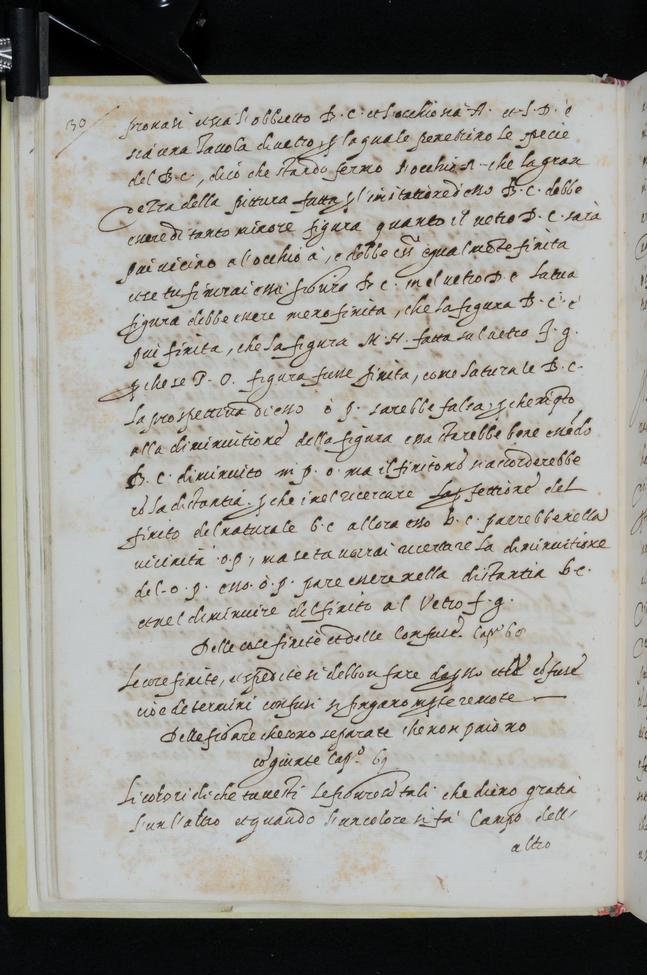 30
prouasi et sia l'obbietto B. C. et l'occhio sia A. et l. D. e
sia una tauola di uetro p la quale penetrino le specie
del B. C., dico che stando fermo l'occhio A. che la gran
dezza della pittura fatta p l'imitatione d'esso B. C. debbe
essere di tanto minore figura quanto il uetro D. C. sarà
piu uicino al occhio à, e debbe ess egualmēte finita
et se tu finirai essa figura B C. in el uetro D. e la tua
figura debbe essere meno finita, che la figura B. C. e
piu finita, che la figura M. N. fatta sul uetro f. g.
p che se P. O. figura fusse finita, come la turale B. C.
la prospettiua di esso o p. sarebbe falsa, p che inqto
alla diminuitione della figura essa starebbe bene essēdo
B. C. diminuito in p. o. ma il finito nō si accorderebbe
cō la distantia. p che i nel ricercare la pfettione del
finito del naturale b. c allora esso b. c. parrebbe nella
uicinità o. p, ma se tu uorrai ricercare la diminuitione
del. o. p. esso. o. p. pare essere nella distantia b. c.
et nel diminuire del finito al Vetro f. g.
Delle cose finite et delle confuse. Cap° 68
Le cose finite, et spedite si debbon fare dap̄sso et le cōfuse
cioè de termini confusi si fingano in pte remote
Delle figure che sono separate che non paiono
cōgiunte Cap.° 69
Li colori di che tu uesti le figure siē tali che dieno gratia
l'un l'altro et quando l'un colore si fa Campo dell'
altro